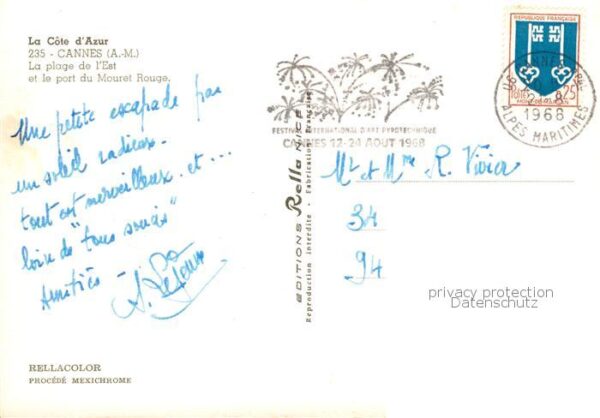 La Côte d'Azur
235 - CANNES (A.-M.)
La plage de l'Est
et le port du Mouret Rouge.
Une petite escapade par
un soleil radieux.
tout est merveilleux et...
loin de "tous soucis"
Amitiés -
RELLACOLOR
PROCÉDÉ MEXICHROME
EDITIONS Rella NICE
Reproduction interdite - Fabrication Française
FESTIVAL INTERNATIONAL D'ART PYROTECHNIQUE
CANNES 12-24 AOUT 1968
REPUBLIQUE FRANÇAISE
POSTES 0,25
MONT-DE-MARSAN
CANNES
1968
ALPES MARITIMES
Mr et Mme R. Vivia
34
94
privacy protection
Datenschutz